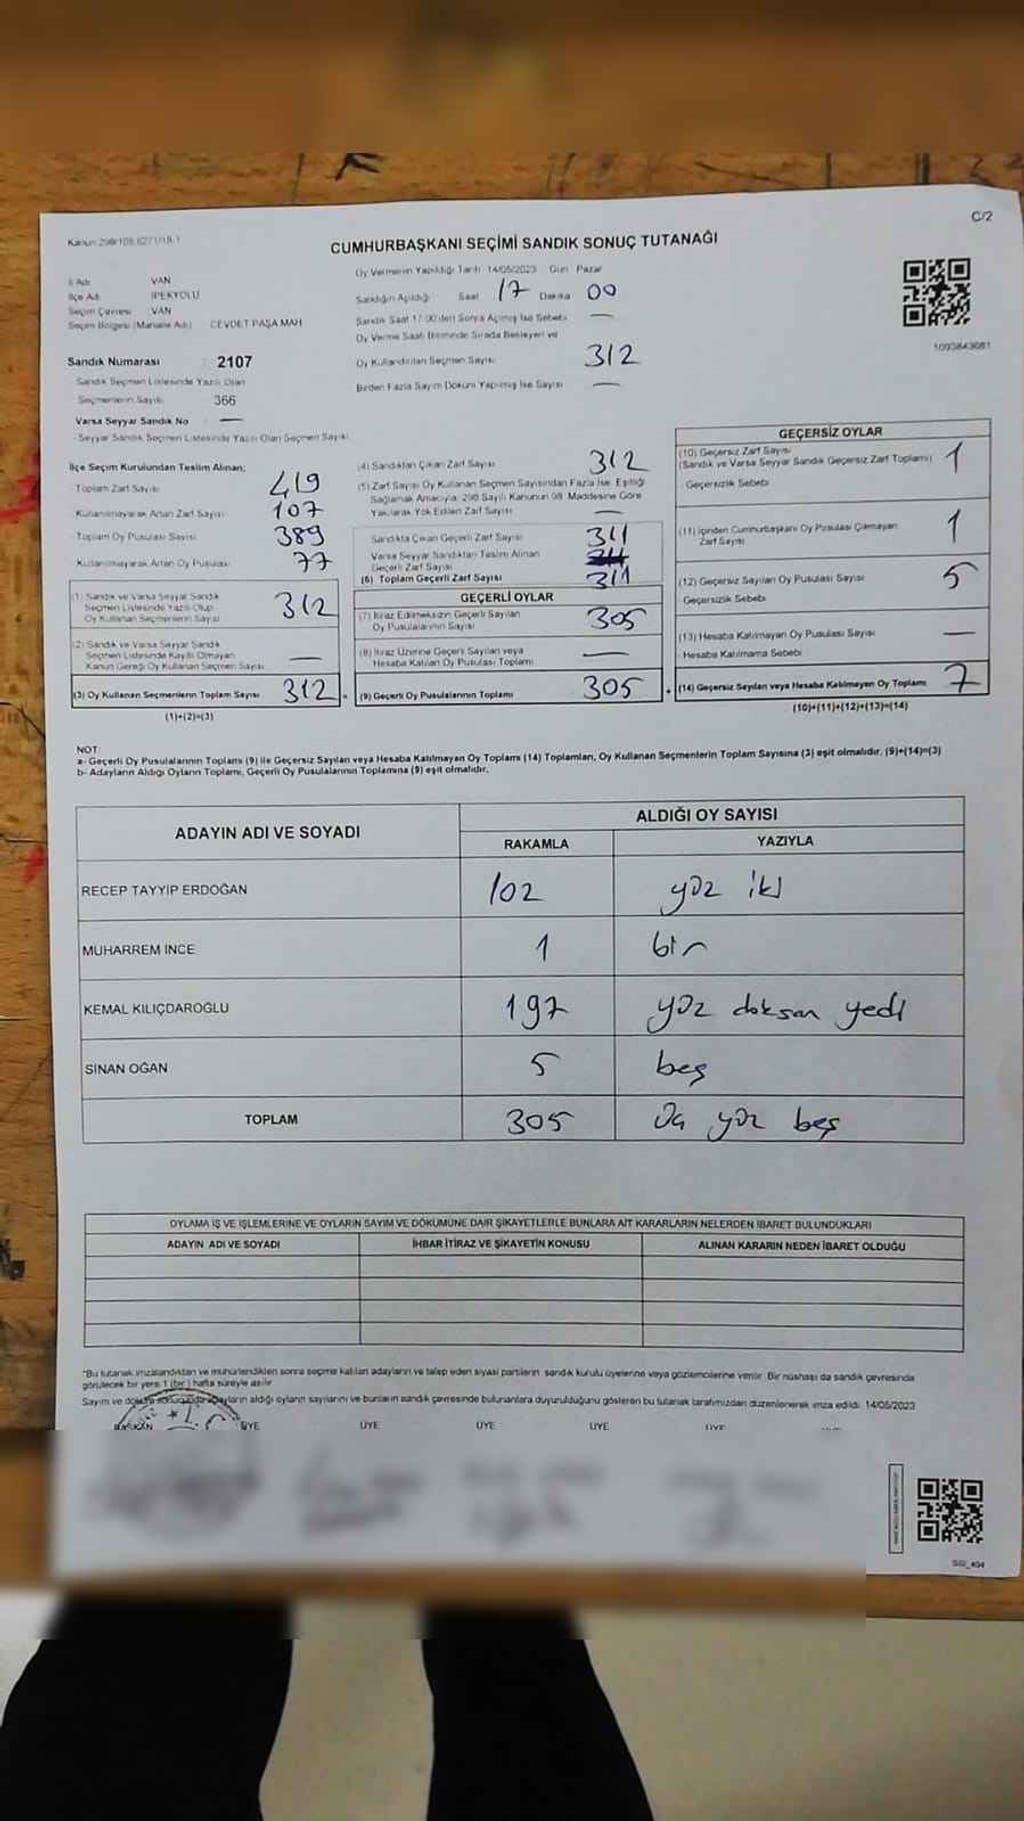 C/2
CUMHURBAŞKANI SEÇİMİ SANDIK SONUÇ TUTANAĞI
İl Adı VAN
İlçe Adı İPEKYOLU
Seçim Çevresi VAN
Seçim Bölgesi (Mahalle Adı) CEVDET PAŞA MAH
Sandık Numarası : 2107
Sandık Seçmen Listesinde Yazılı Olan
Seçmenlerin Sayısı 366
Varsa Seyyar Sandık No —
Seyyar Sandık Seçmen Listesinde Yazılı Olan Seçmen Sayısı
Oy Vermenin Yapıldığı Tarih 14/05/2023 Gün Pazar
Sandığın Açıldığı Saat 17 Dakika 00
Sandık Saat 17:00'den Sonra Açılmış İse Sebebi —
Oy Verme Saati Bitiminde Sırada Bekleyen ve
Oy Kullandırılan Seçmen Sayısı 312
Birden Fazla Sayım Dökümü Yapılmış İse Sayısı —
1093843081
İlçe Seçim Kurulundan Teslim Alınan;
Toplam Zarf Sayısı 419
Kullanılmayarak Artan Zarf Sayısı 107
Toplam Oy Pusulası Sayısı 389
Kullanılmayarak Artan Oy Pusulası 77
(1) Sandık ve Varsa Seyyar Sandık
Seçmen Listesinde Yazılı Olup
Oy Kullanan Seçmenlerin Sayısı 312
(2) Sandık ve Varsa Seyyar Sandık
Seçmen Listesinde Kayıtlı Olmayan
Kanun Gereği Oy Kullanan Seçmen Sayısı —
(3) Oy Kullanan Seçmenlerin Toplam Sayısı 312
(1)+(2)=(3)
(4) Sandıktan Çıkan Zarf Sayısı 312
(5) Zarf Sayısı Oy Kullanan Seçmen Sayısından Fazla İse, Eşitliği
Sağlamak Amacıyla, 298 Sayılı Kanunun 98. Maddesine Göre
Yakılarak Yok Edilen Zarf Sayısı —
Sandıkta Çıkan Geçerli Zarf Sayısı 311
Varsa Seyyar Sandıktan Teslim Alınan
Geçerli Zarf Sayısı
(6) Toplam Geçerli Zarf Sayısı 311
GEÇERLİ OYLAR
(7) İtiraz Edilmeksizin Geçerli Sayılan
Oy Pusulalarının Sayısı 305
(8) İtiraz Üzerine Geçerli Sayılan veya
Hesaba Katılan Oy Pusulası Toplamı —
(9) Geçerli Oy Pusulalarının Toplamı 305
GEÇERSİZ OYLAR
(10) Geçersiz Zarf Sayısı
(Sandık ve Varsa Seyyar Sandık Geçersiz Zarf Toplamı) 1
Geçersizlik Sebebi
(11) İçinden Cumhurbaşkanı Oy Pusulası Çıkmayan
Zarf Sayısı 1
(12) Geçersiz Sayılan Oy Pusulası Sayısı 5
Geçersizlik Sebebi
(13) Hesaba Katılmayan Oy Pusulası Sayısı —
Hesaba Katılmama Sebebi
(14) Geçersiz Sayılan veya Hesaba Katılmayan Oy Toplamı 7
(10)+(11)+(12)+(13)=(14)
NOT:
a- Geçerli Oy Pusulalarının Toplamı (9) ile Geçersiz Sayılan veya Hesaba Katılmayan Oy Toplamı (14) Toplamları, Oy Kullanan Seçmenlerin Toplam Sayısına (3) eşit olmalıdır. (9)+(14)=(3)
b- Adayların Aldığı Oyların Toplamı, Geçerli Oy Pusulalarının Toplamına (9) eşit olmalıdır.
ADAYIN ADI VE SOYADI
ALDIĞI OY SAYISI
RAKAMLA YAZIYLA
RECEP TAYYİP ERDOĞAN 102 yüz iki
MUHARREM İNCE 1 bir
KEMAL KILIÇDAROĞLU 197 yüz doksan yedi
SİNAN OĞAN 5 beş
TOPLAM 305 Üç yüz beş
OYLAMA İŞ VE İŞLEMLERİNE VE OYLARIN SAYIM VE DÖKÜMÜNE DAİR ŞİKAYETLERLE BUNLARA AİT KARARLARIN NELERDEN İBARET BULUNDUKLARI
ADAYIN ADI VE SOYADI İHBAR İTİRAZ VE ŞİKAYETİN KONUSU ALINAN KARARIN NEDEN İBARET OLDUĞU
*Bu tutanak imzalandıktan ve mühürlendikten sonra seçime katılan adayların ve talep eden siyasi partilerin sandık kurulu üyelerine veya gözlemcilerine verilir. Bir nüshası da sandık çevresinde
görülecek bir yere 1 (bir) hafta süreyle asılır.
Sayım ve döküm sonucunda adayların aldığı oyların sayılarını ve bunların sandık çevresinde bulunanlara duyurulduğunu gösteren bu tutanak tarafımızdan düzenlenerek imza edildi. 14/05/2023
BAŞKAN ÜYE ÜYE ÜYE ÜYE ÜYE